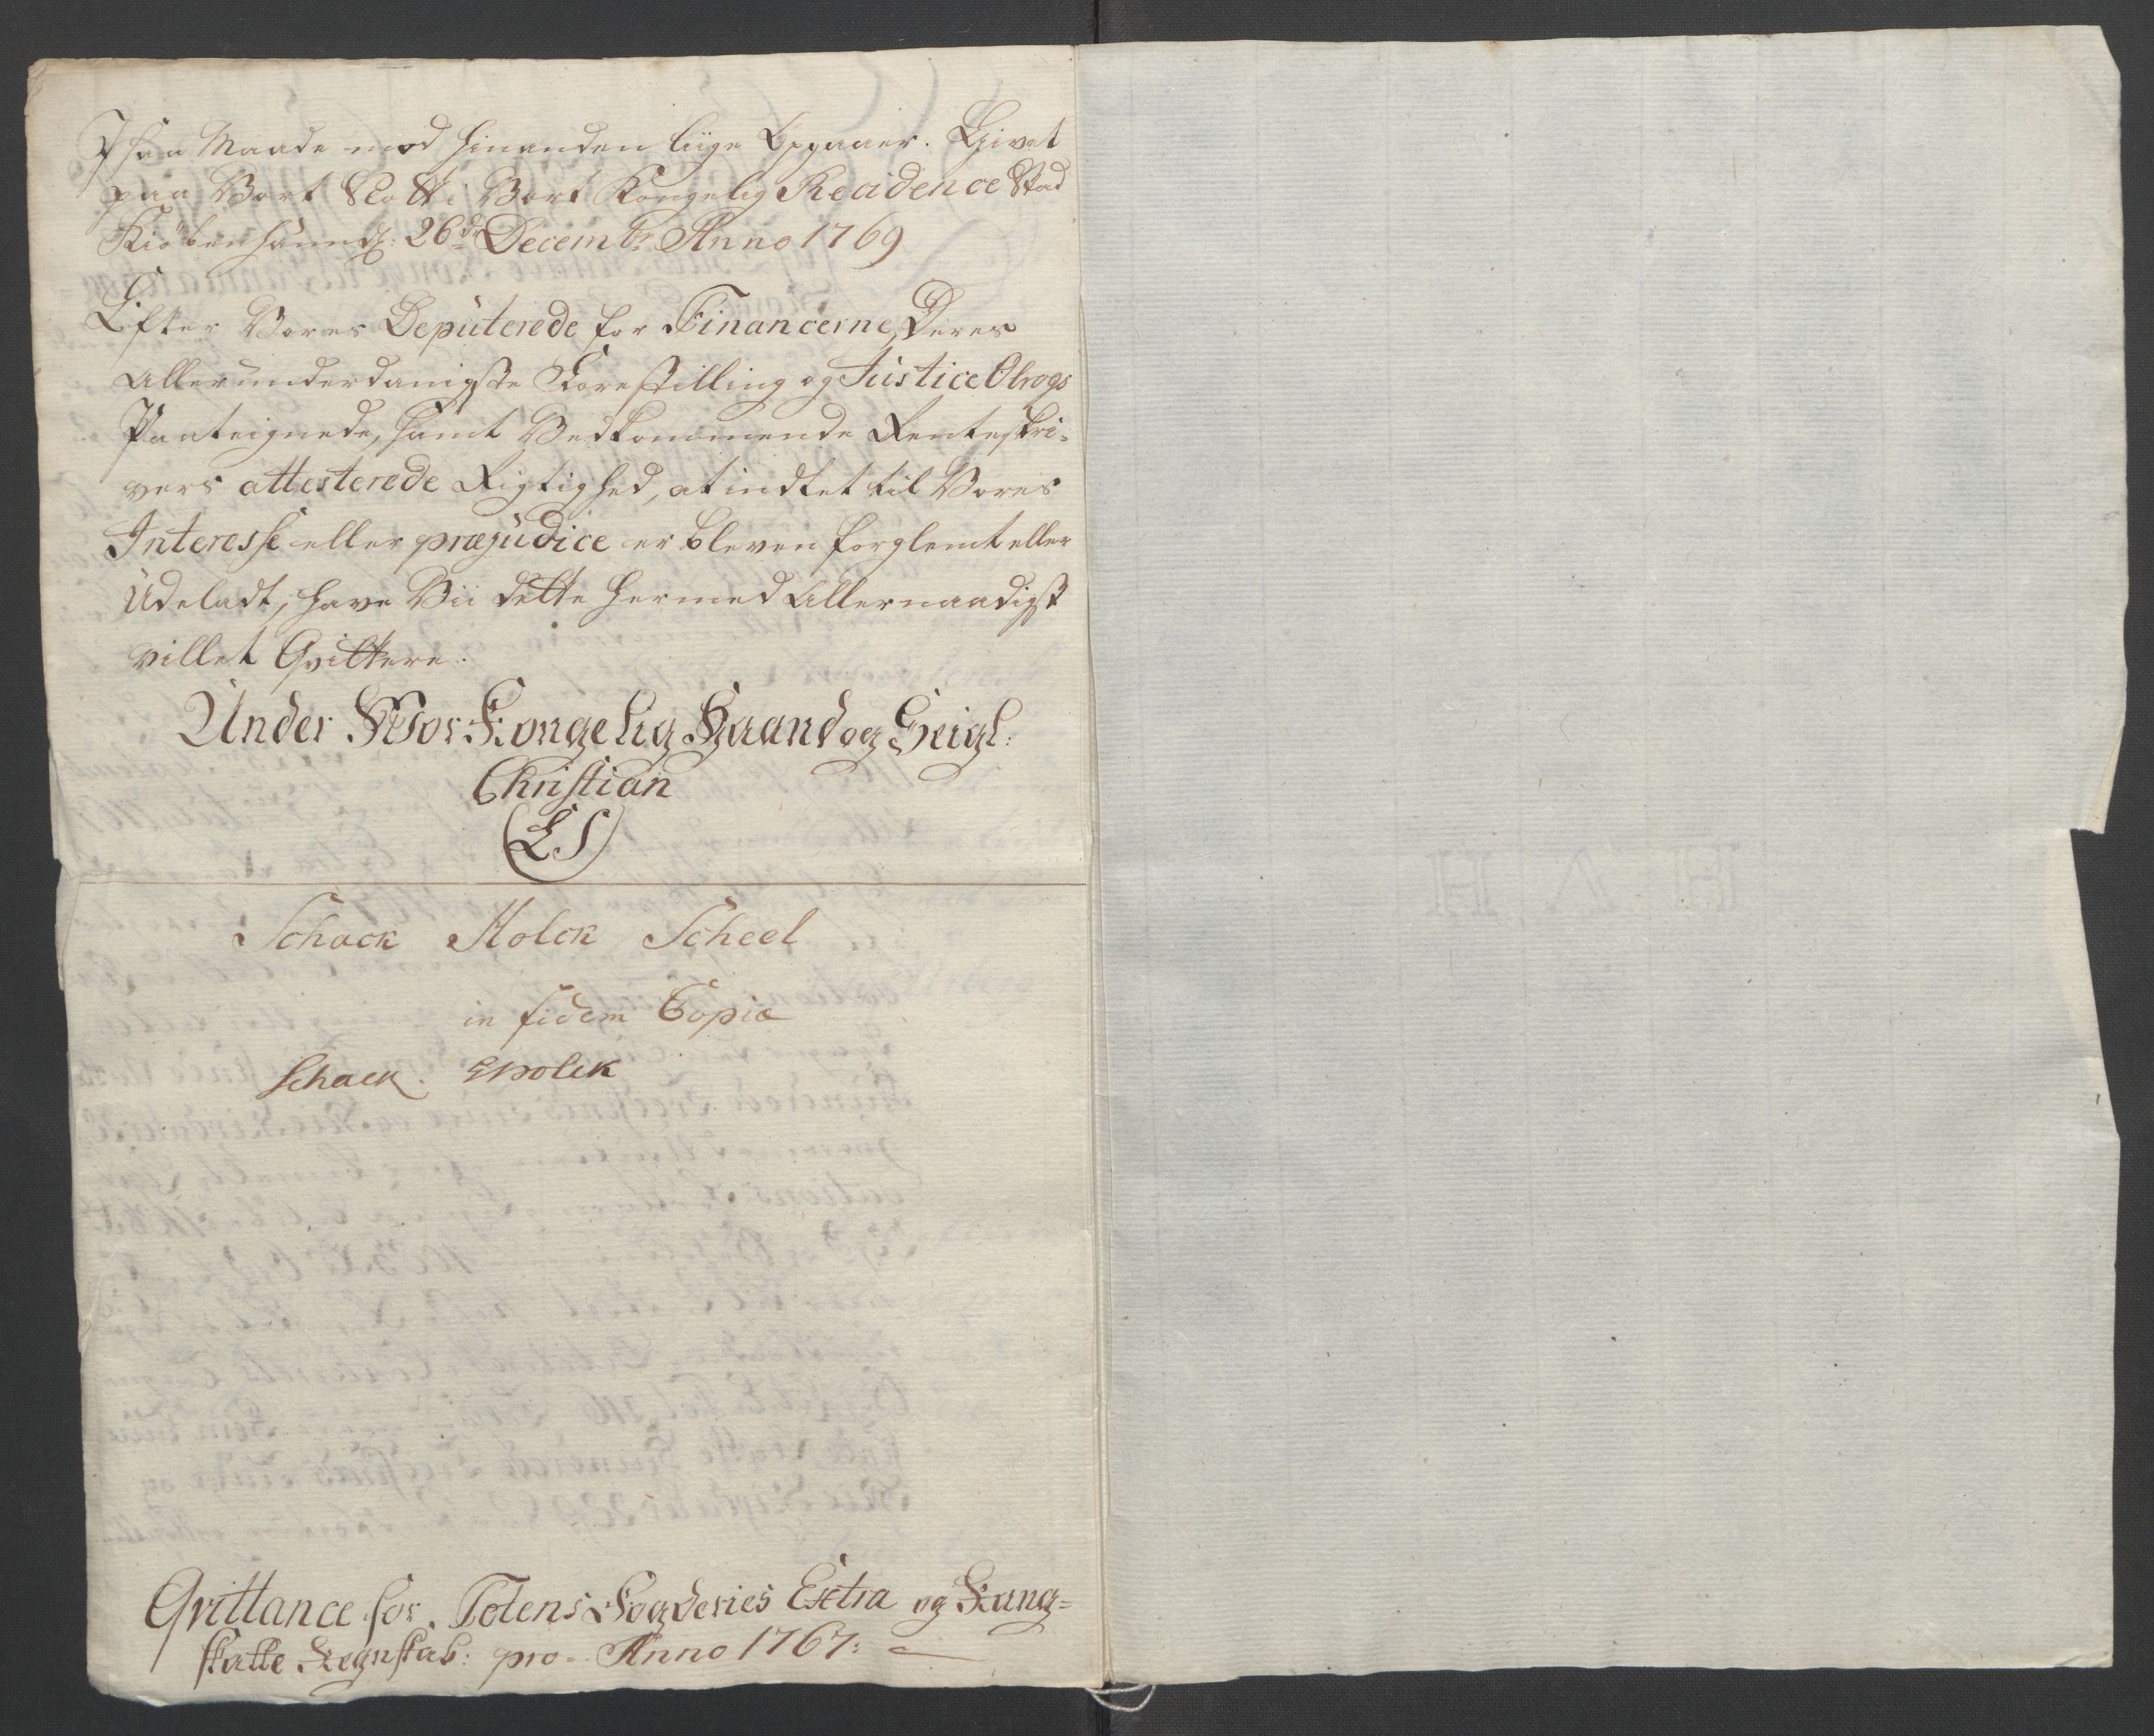 I saa Maade mod hinanden liige Opgaaer. Givet
paa Vort Slott i Vort Kongelig Recidence Stad
Kiöbenhaun d: 26de Decembr Anno 1769
Efter Vores Deputerede for Financerne, Deres
Allerunderdanigste Forestilling og Justice Olrogs
Paateignede, samt Vedkommende Renteskri-
vers attesterede Rigtighed, at indtet til Vores
Interesse eller præjudice er bleven forglemt eller
Udeladt, have Vii dette hermed Allernaadigst
villet Qvittere.
Under Vor Kongelig Haand og Seigl:
Christian
(LS)
Schack Holck Scheel
in fidem Copiæ
Schack. Holck
Qvittance for Totens Fogderies Extra og Rang-
skatte Regnskab: pro Anno 1767: